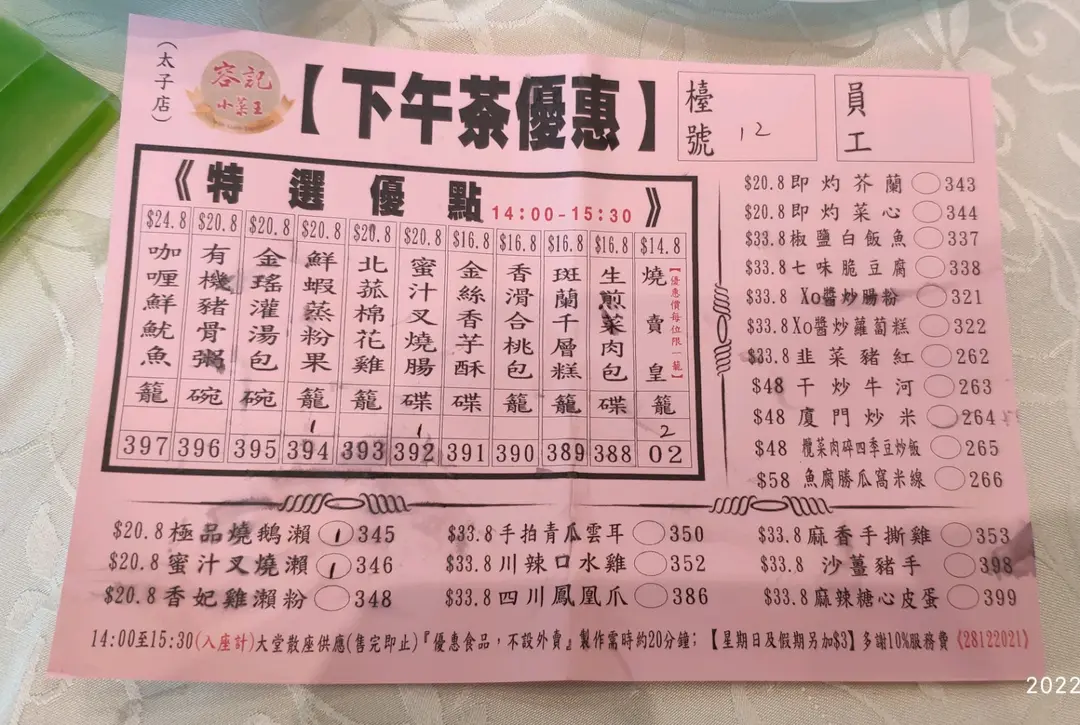 (太子店)
容記
小菜王
【下午茶優惠】
檯號 12
員工
《特選優點 14:00-15:30》
$24.8 咖喱鮮魷魚 籠 397
$20.8 有機豬骨粥 碗 396
$20.8 金瑤灌湯包 碗 395
$20.8 鮮蝦蒸粉果 籠 1 394
$20.8 北菰棉花雞 籠 393
$20.8 蜜汁叉燒腸 碟 1 392
$16.8 金絲香芋酥 碟 391
$16.8 香滑合桃包 籠 390
$16.8 斑蘭千層糕 籠 389
$16.8 生煎菜肉包 碟 388
$14.8 燒賣皇 籠 2 02
【優惠價每位限一籠】
$20.8 即灼芥蘭 343
$20.8 即灼菜心 344
$33.8 椒鹽白飯魚 337
$33.8 七味脆豆腐 338
$33.8 Xo醬炒腸粉 321
$33.8 Xo醬炒蘿蔔糕 322
$33.8 韭菜豬紅 262
$48 干炒牛河 263
$48 廈門炒米 264
$48 欖菜肉碎四季豆炒飯 265
$58 魚腐勝瓜窩米線 266
$20.8 極品燒鵝瀨 1 345
$20.8 蜜汁叉燒瀨 1 346
$20.8 香妃雞瀨粉 348
$33.8 手拍青瓜雲耳 350
$33.8 川辣口水雞 352
$33.8 四川鳳凰爪 386
$33.8 麻香手撕雞 353
$33.8 沙薑豬手 398
$33.8 麻辣糖心皮蛋 399
14:00至15:30(入座計)大堂散座供應(售完即止)『優惠食品,不設外賣』製作需時約20分鐘;【星期日及假期另加$3】多謝10%服務費《28122021》
2022